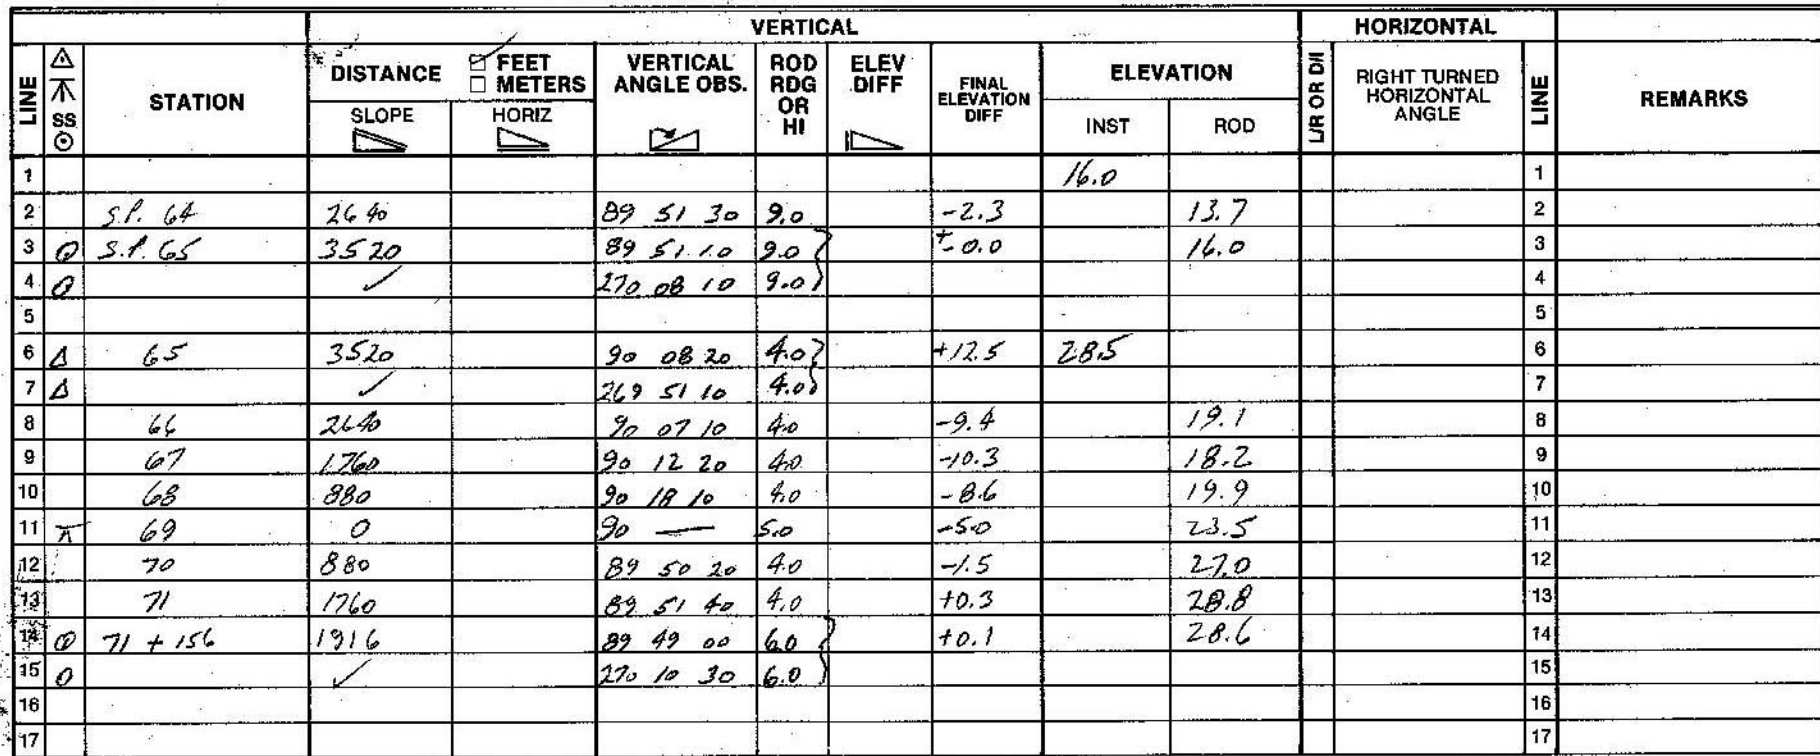 VERTICAL HORIZONTAL
LINE SS STATION DISTANCE FEET METERS VERTICAL ANGLE OBS. ROD RDG OR HI ELEV DIFF FINAL ELEVATION DIFF ELEVATION L/R OR D/I RIGHT TURNED HORIZONTAL ANGLE LINE REMARKS
SLOPE HORIZ INST ROD
1 16.0 1
2 S.P. 64 2640 89 51 30 9.0 -2.3 13.7 2
3 S.P. 65 3520 89 51 10 9.0 ± 0.0 16.0 3
4 ✓ 270 08 10 9.0 4
5 5
6 Δ 65 3520 90 08 20 4.0 +12.5 28.5 6
7 Δ ✓ 269 51 10 4.0 7
8 66 2640 90 07 10 4.0 -9.4 19.1 8
9 67 1760 90 12 20 4.0 -10.3 18.2 9
10 68 880 90 18 10 4.0 -8.6 19.9 10
11 69 0 90 — 5.0 -5.0 23.5 11
12 70 880 89 50 20 4.0 -1.5 27.0 12
13 71 1760 89 51 40 4.0 +0.3 28.8 13
14 71 + 156 1916 89 49 00 6.0 +0.1 28.6 14
15 ✓ 270 10 30 6.0 15
16 16
17 17